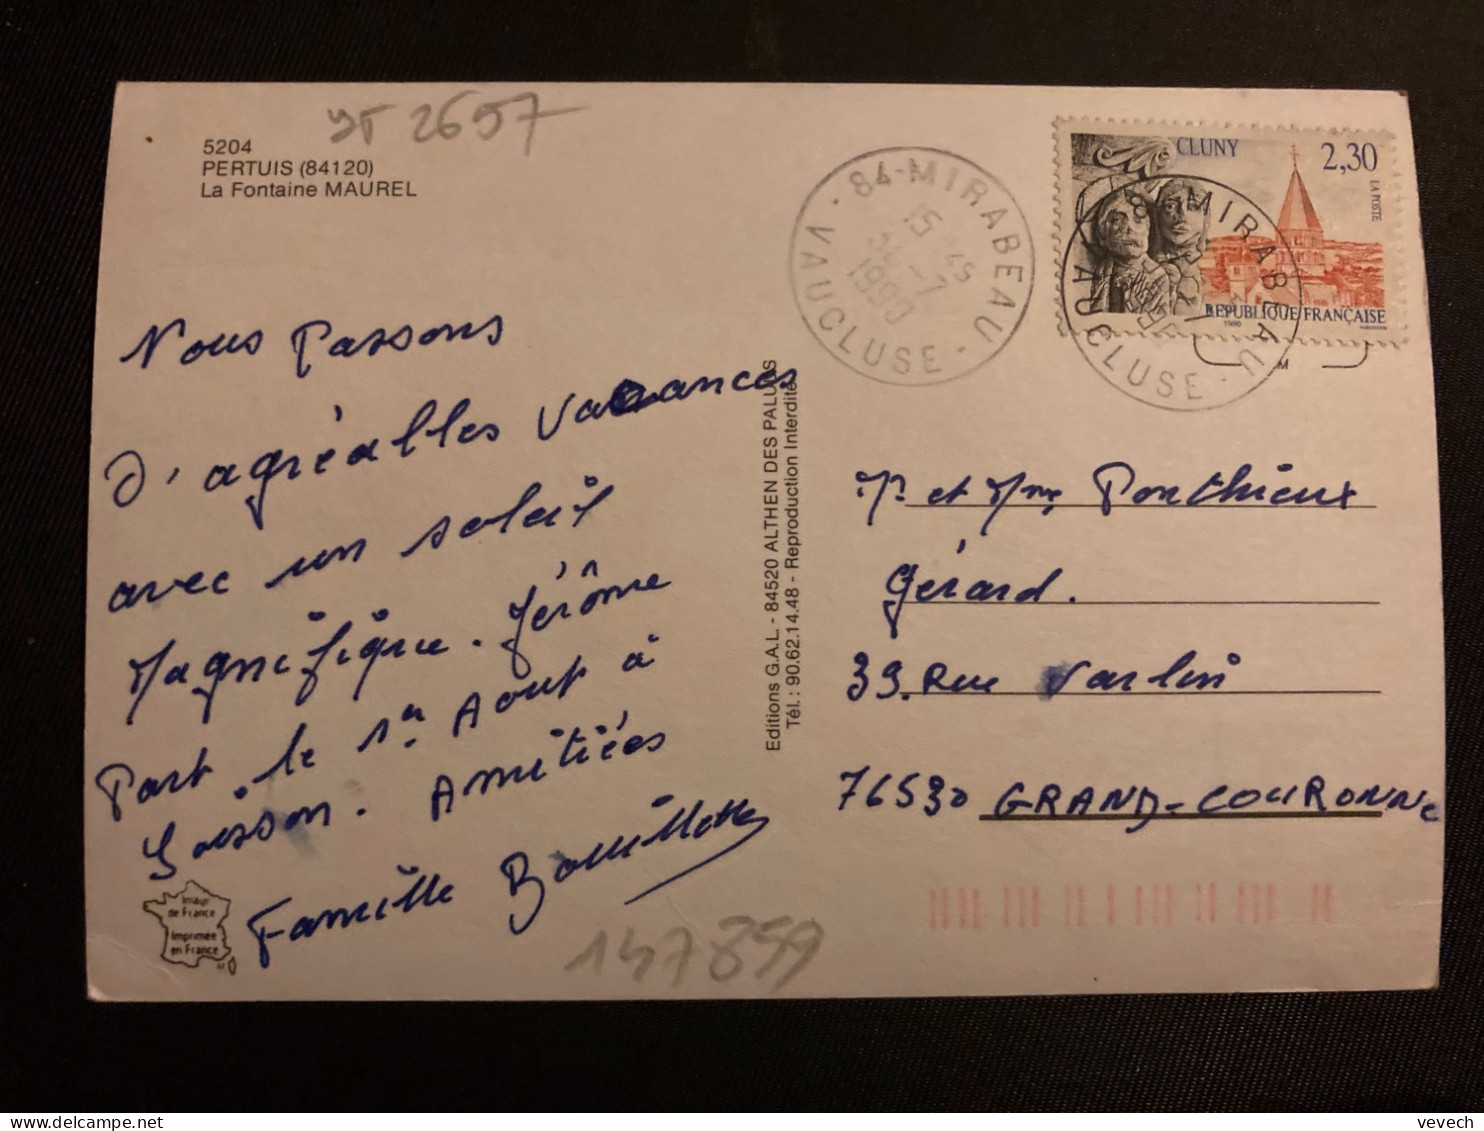 ST 2657
5204
PERTUIS (84120)
La Fontaine MAUREL
Nous Passons
d'agréables vacances
avec un soleil
Magnifique. Jérôme
Part le 1er Aout à
Amitiés
Famille Bouillette
Image
de France
Imprimée
en France
147899
Editions G.A.L - 84520 ALTHEN DES PALUDS
Tél. : 90.62.14.48 - Reproduction Interdite
84-MIRABEAU
15 45
-7
1990
VAUCLUSE
CLUNY
2,30
LA POSTE
REPUBLIQUE FRANÇAISE
1990
84-MIRABEAU
VAUCLUSE
Mr et Mme Ponthieux
Gérard.
39. Rue Varlin
76530 GRAND-COURONNE
vevech